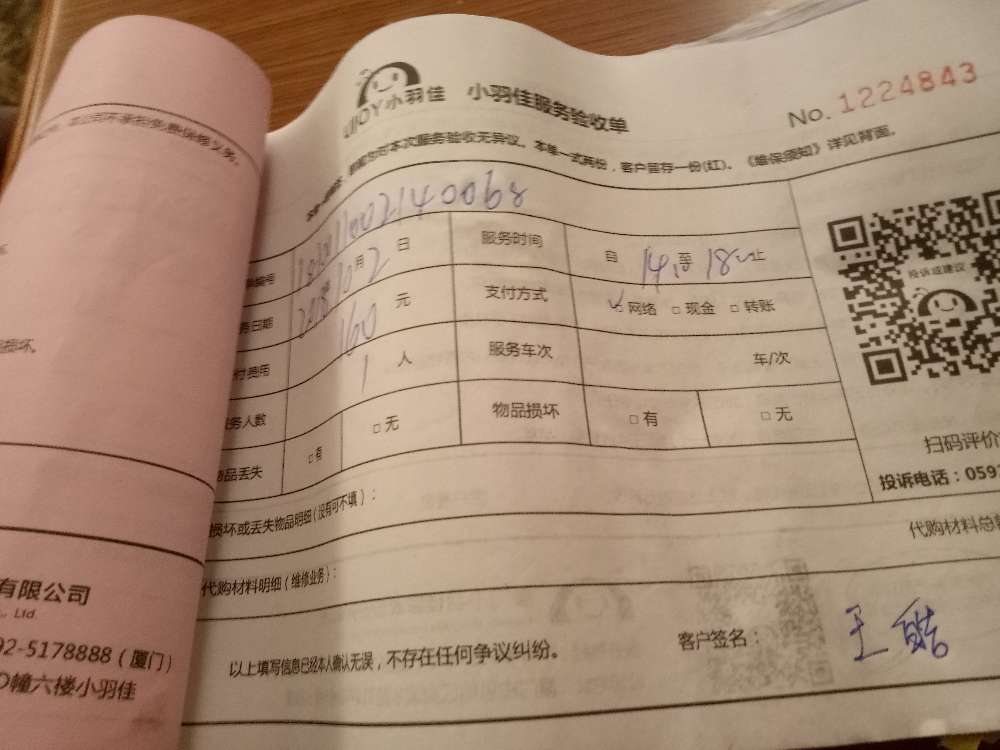 小羽佳服务验收单
No. 1224843
IJOY小羽佳
对本次服务验收无异议。本单一式两份，客户留存一份(红)。《维保须知》详见背面。
2018年10月2日
服务时间
自14:10至18止
160元
支付方式
✓网络 □现金 □转账
付费用
1人
服务车次
车/次
务人数
物品丢失
□有
□无
物品损坏
□有
□无
投诉或建议
扫码评价
投诉电话：059
损坏或丢失物品明细(没有可不填)：
代购材料明细(维修业务)：
代购材料总
以上填写信息已经本人确认无误，不存在任何争议纠纷。
客户签名：
王皓
损坏。
有限公司
., Ltd.
92-5178888（厦门）
O幢六楼小羽佳